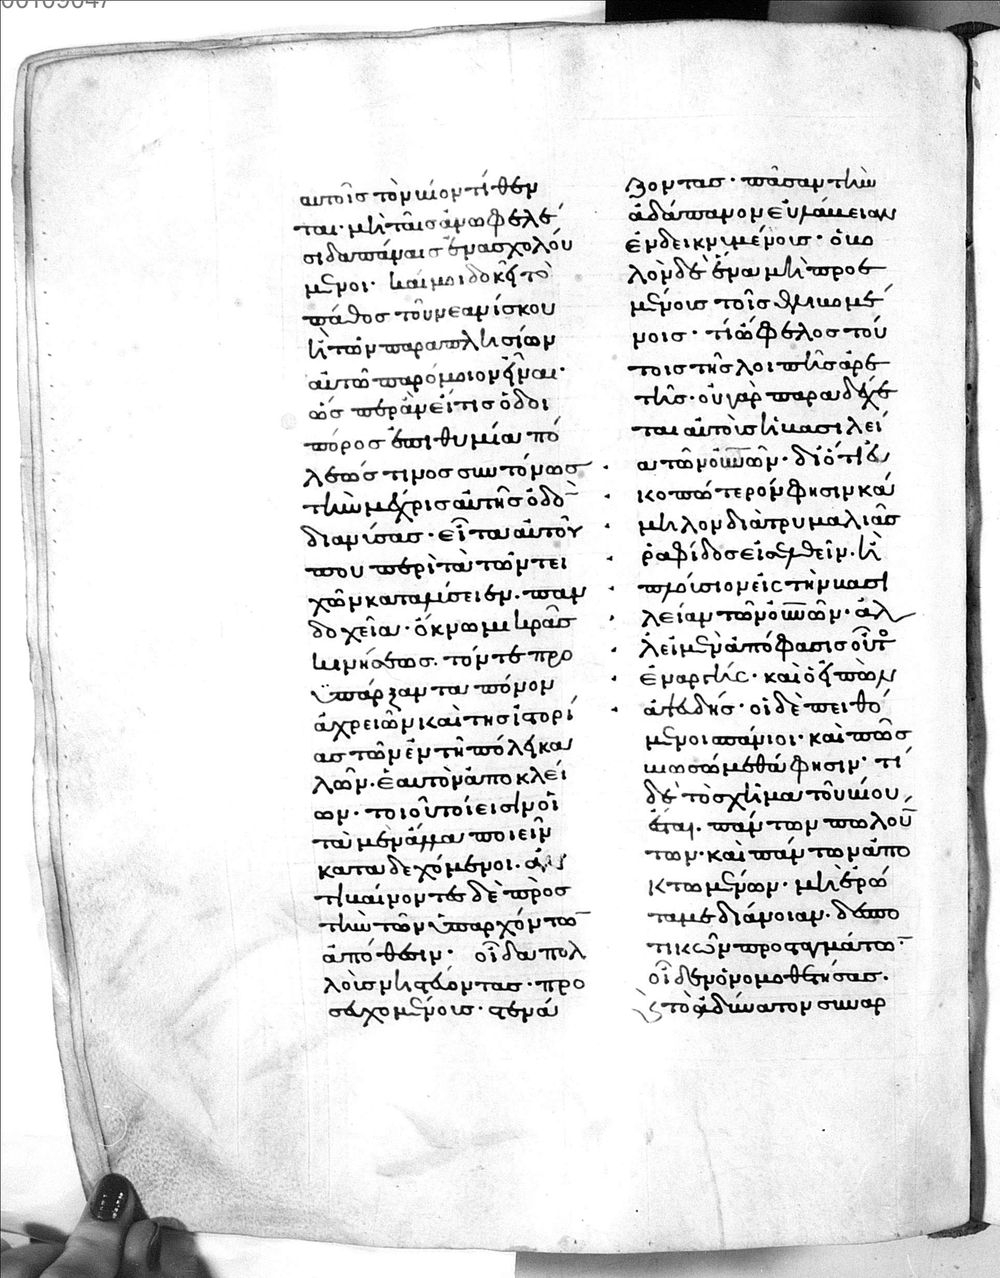 00109047
αυτοῖς τὸν υἱὸν τίθεν
ται· μὴ ταῖς ἀνωφελέ
σι δαπάναις ἐνασχολού
μενοι· καί μοι δοκεῖ τὸ
πάθος τοῦ νεανίσκου
ἢ τῶν παραπλησίων
αὐτῶ παρόμοιον εἶναι·
ὡς περ ἂν εἴ τις ὁδοι
πόρος ἐπιθυμία πό
λεώς τινος συντόνως
τὴν μέχρις αὐτῆς ὁδὸν
διανύσας· εἶτα αὐτοῦ
που περὶ τὰ τῶν τει
χῶν καταλύσειεν. παν
δοχεῖα· ὄκνω μικρᾶς
κινήσεως. τόν τε προ
ϋπάρξαντα πόνον
ἀχρειῶν καὶ τῆς ἱστορί
ας τῶν ἐν τῆ πόλει κα
λῶν. ἑαυτὸν ἀποκλεί
ων· τοιοῦτοί εισιν οἱ
τὰ μὲν ἄλλα ποιεῖν
καταδεχόμενοι. ἀν
τιβαίνοντες δὲ πρὸς
τὴν τῶν ὑπαρχόντων
ἀπόθεσιν· οἶδα πολ
λοὺς νηστεύοντας· προ
σευχομένους· στενά
ζοντας· πᾶσαν τὴν
ἀδάπανον εὐλάβειαν
ἐνδεικνυμένους· ὀβο
λὸν δὲ ἕνα μὴ προϊε
μένους τοῖς θλιβομέ
νοις· τί ὄφελος τού
τοις τῆς λοιπῆς ἀρε
τῆς· οὐ γὰρ παραδέχε
ται αὐτοὺς ἡ βασιλεί
α τῶν οὐνῶν· διότι εὐ
κοπώτερόν φησιν κά
μηλον διὰ τρυμαλιᾶς
ῥαφίδος εἰσελθεῖν· ἢ
πλούσιον εἰς τὴν βασι
λείαν τῶν οὐνῶν· ἀλ
λ' ἡ μὲν ἀπόφασις οὕτω
ἐναργής· καὶ ὁ εἰπὼν
ἀψευδής· οἱ δὲ πειθό
μενοι σπάνιοι· καὶ πῶς
βιωσώμεθά φησιν· τί
δὲ τὸ σχῆμα τοῦ βίου
ἔσται. πάντων πωλούν
των· καὶ πάντων ἀπο
κτωμένων· μὴ ἐρώ
τα με διάνοιαν. δεσπο
τικῶν προσταγμάτων·
οἶδεν ὁ νομοθετήσας·
τὸ ἀδύνατον συναρ